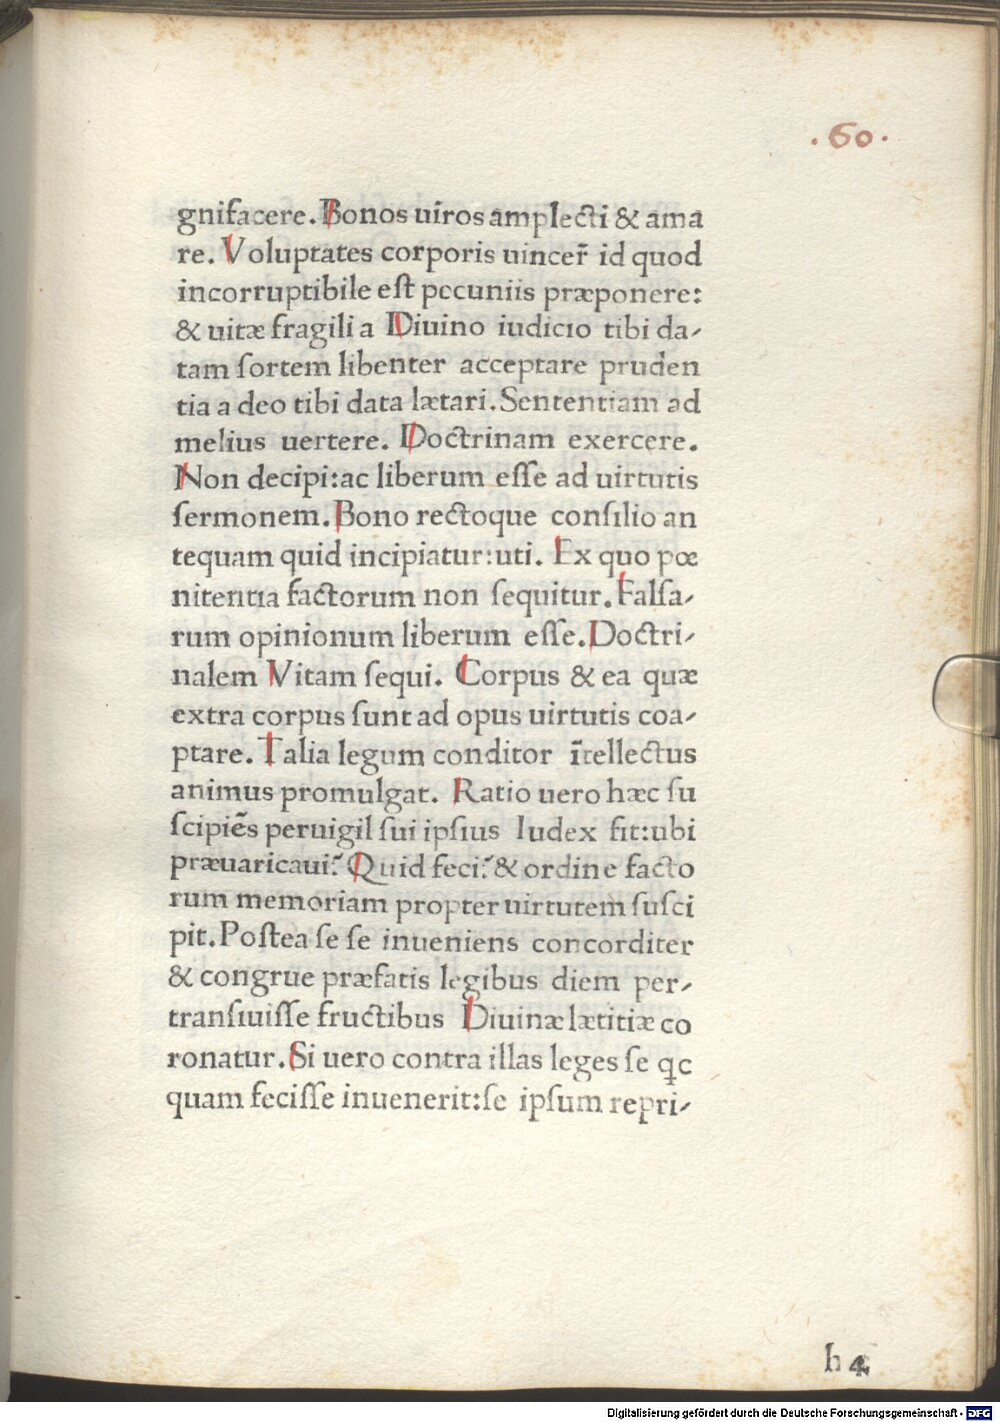 .60.
gnifacere. Bonos uiros amplecti & ama
re. Voluptates corporis uincer̄ id quod
incorruptibile est pecuniis præponere:
& uitæ fragili a Diuino iudicio tibi da⸗
tam sortem libenter acceptare pruden
tia a deo tibi data lætari. Sententiam ad
melius uertere. Doctrinam exercere.
Non decipi: ac liberum esse ad uirtutis
sermonem. Bono rectoque consilio an
tequam quid incipiatur: uti. Ex quo pœ
nitentia factorum non sequitur. Falsa⸗
rum opinionum liberum esse. Doctri⸗
nalem Vitam sequi. Corpus & ea quæ
extra corpus sunt ad opus uirtutis coa⸗
ptare. Talia legum conditor ītellectus
animus promulgat. Ratio uero hæc su
scipiēs peruigil sui ipsius Iudex fit: ubi
præuaricaui? Quid feci? & ordine facto
rum memoriam propter uirtutem susci
pit. Postea se se inueniens concorditer
& congrue præfatis legibus diem per⸗
transiuisse fructibus Diuinæ lætitiæ co
ronatur. Si uero contra illas leges se qc
quam fecisse inuenerit: se ipsum repri⸗
h 4
Digitalisierung gefördert durch die Deutsche Forschungsgemeinschaft - DFG